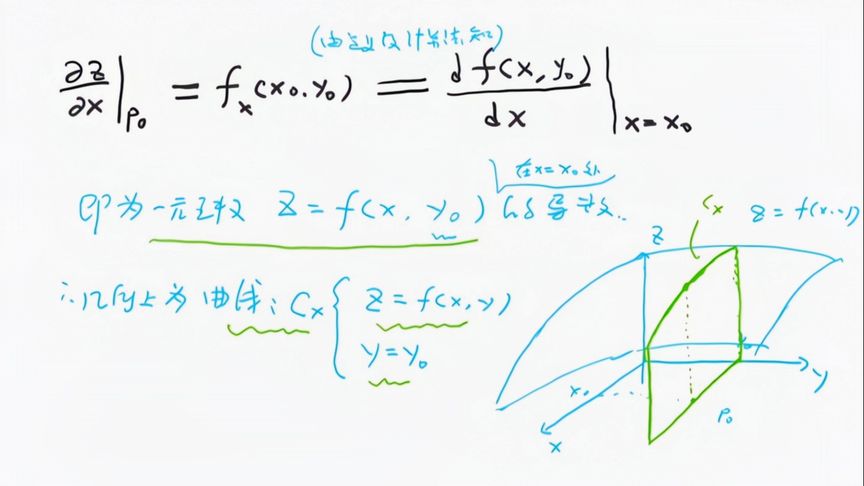 (由定义及计算法知)
∂z/∂x|P₀ = fₓ(x₀,y₀) = d f(x,y₀)/dx |x=x₀
在x=x₀处
即为一元函数 z=f(x,y₀)的导数..
∴几何上为曲线: Cₓ { z=f(x,y)
y=y₀
Cₓ
z=f(x,y)
z
x₀
y
P₀
x